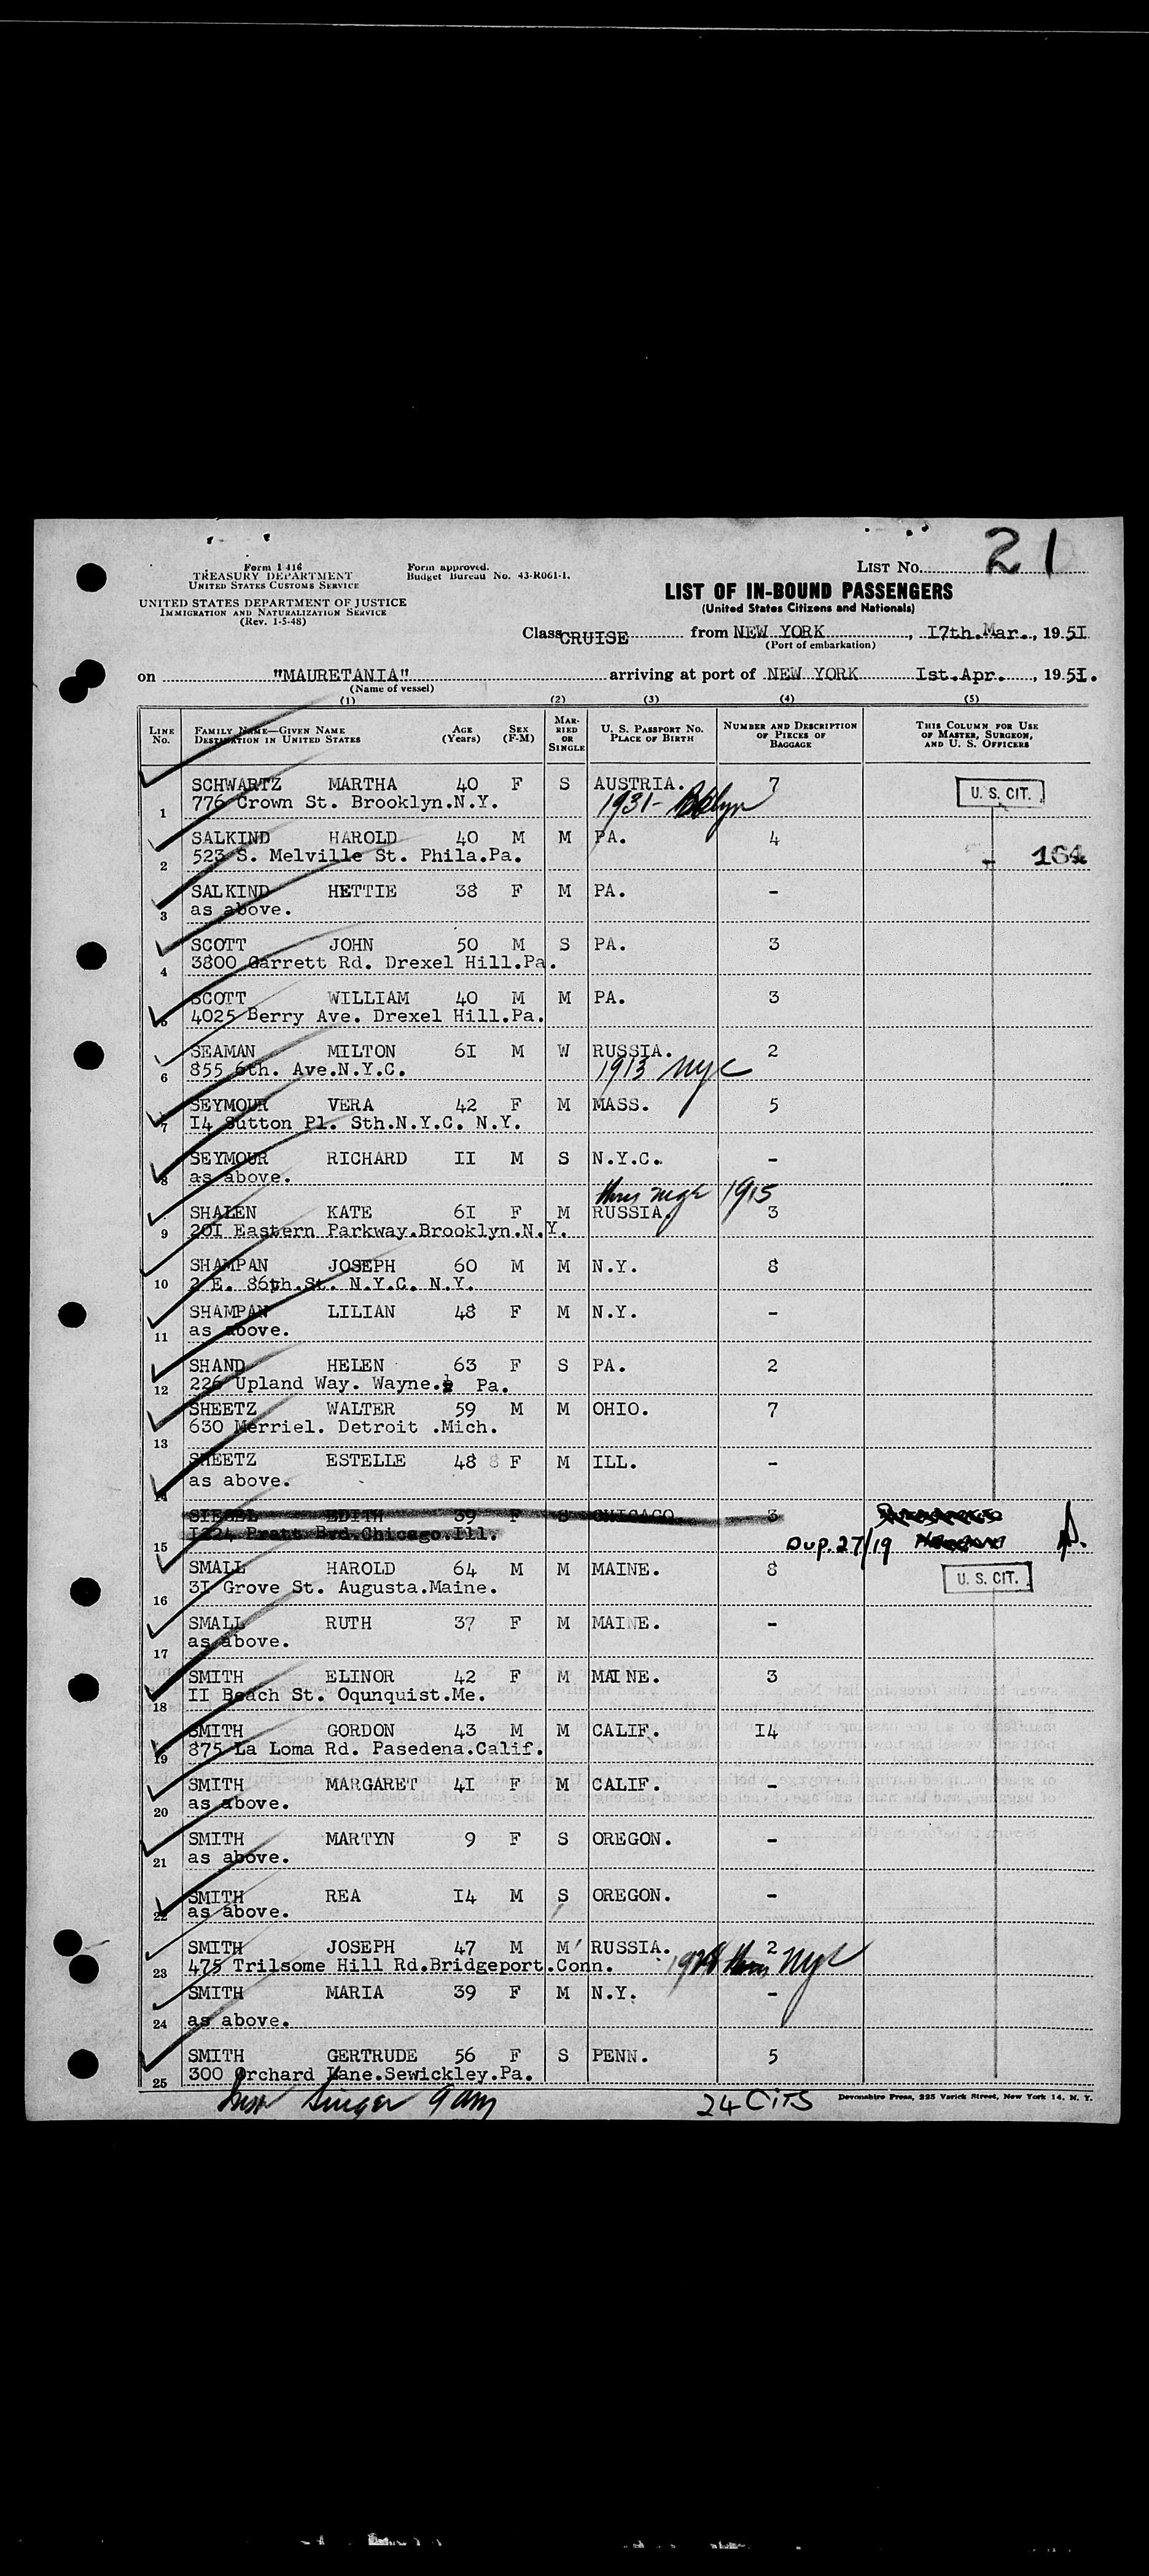 21
Form I 416
TREASURY DEPARTMENT
UNITED STATES CUSTOMS SERVICE
Form approved.
Budget Bureau No. 43-R061-1.
LIST NO.
UNITED STATES DEPARTMENT OF JUSTICE
IMMIGRATION AND NATURALIZATION SERVICE
(Rev. 1-5-48)
LIST OF IN-BOUND PASSENGERS
(United States Citizens and Nationals)
Class CRUISE from NEW YORK, 17th.Mar., 1951
(Port of embarkation)
on "MAURETANIA" arriving at port of NEW YORK Ist.Apr., 1951.
(Name of vessel)
(1) (2) (3) (4) (5)
LINE NO. FAMILY NAME—GIVEN NAME DESTINATION IN UNITED STATES AGE (YEARS) SEX (F-M) MARRIED OR SINGLE U. S. PASSPORT NO. PLACE OF BIRTH NUMBER AND DESCRIPTION OF PIECES OF BAGGAGE THIS COLUMN FOR USE OF MASTER, SURGEON, AND U. S. OFFICERS
SCHWARTZ MARTHA 40 F S AUSTRIA. 7 U. S. CIT.
1 776 Crown St. Brooklyn.N.Y. 1931- Bklyn
SALKIND HAROLD 40 M M PA. 4
2 523 S. Melville St. Phila.Pa. 164
SALKIND HETTIE 38 F M PA. -
3 as above.
SCOTT JOHN 50 M S PA. 3
4 3800 Garrett Rd. Drexel Hill.Pa.
SCOTT WILLIAM 40 M M PA. 3
5 4025 Berry Ave. Drexel Hill.Pa.
SEAMAN MILTON 6I M W RUSSIA. 2
6 855 6th. Ave.N.Y.C. 1913 NYC
SEYMOUR VERA 42 F M MASS. 5
7 I4 Sutton Pl. Sth.N.Y.C. N.Y.
SEYMOUR RICHARD II M S N.Y.C. -
8 as above.
1915
SHALEN KATE 6I F M RUSSIA. 3
9 20I Eastern Parkway.Brooklyn.N.Y.
SHAMPAN JOSEPH 60 M M N.Y. 8
10 2 E. 86th.St. N.Y.C. N.Y.
SHAMPAN LILIAN 48 F M N.Y. -
11 as above.
SHAND HELEN 63 F S PA. 2
12 226 Upland Way. Wayne. Pa.
SHEETZ WALTER 59 M M OHIO. 7
13 630 Merriel. Detroit .Mich.
SHEETZ ESTELLE 48 8 F M ILL. -
14 as above.
SIEGEL EDITH 39 F S CHICAGO 3
15 I224 Pratt Bvd.Chicago.Ill. Dup.27/19
SMALL HAROLD 64 M M MAINE. 8 U. S. CIT.
16 3I Grove St. Augusta.Maine.
SMALL RUTH 37 F M MAINE. -
17 as above.
SMITH ELINOR 42 F M MAINE. 3
18 II Beach St. Oqunquist.Me.
SMITH GORDON 43 M M CALIF. I4
19 875 La Loma Rd. Pasedena.Calif.
SMITH MARGARET 4I F M CALIF. -
20 as above.
SMITH MARTYN 9 F S OREGON. -
21 as above.
SMITH REA I4 M S OREGON. -
22 as above.
SMITH JOSEPH 47 M M RUSSIA. 2
23 475 Trilsome Hill Rd.Bridgeport.Conn. NYC
SMITH MARIA 39 F M N.Y. -
24 as above.
SMITH GERTRUDE 56 F S PENN. 5
25 300 Orchard Lane.Sewickley.Pa.
Singer 24 CITS
Devonshire Press, 225 Varick Street, New York 14, N. Y.